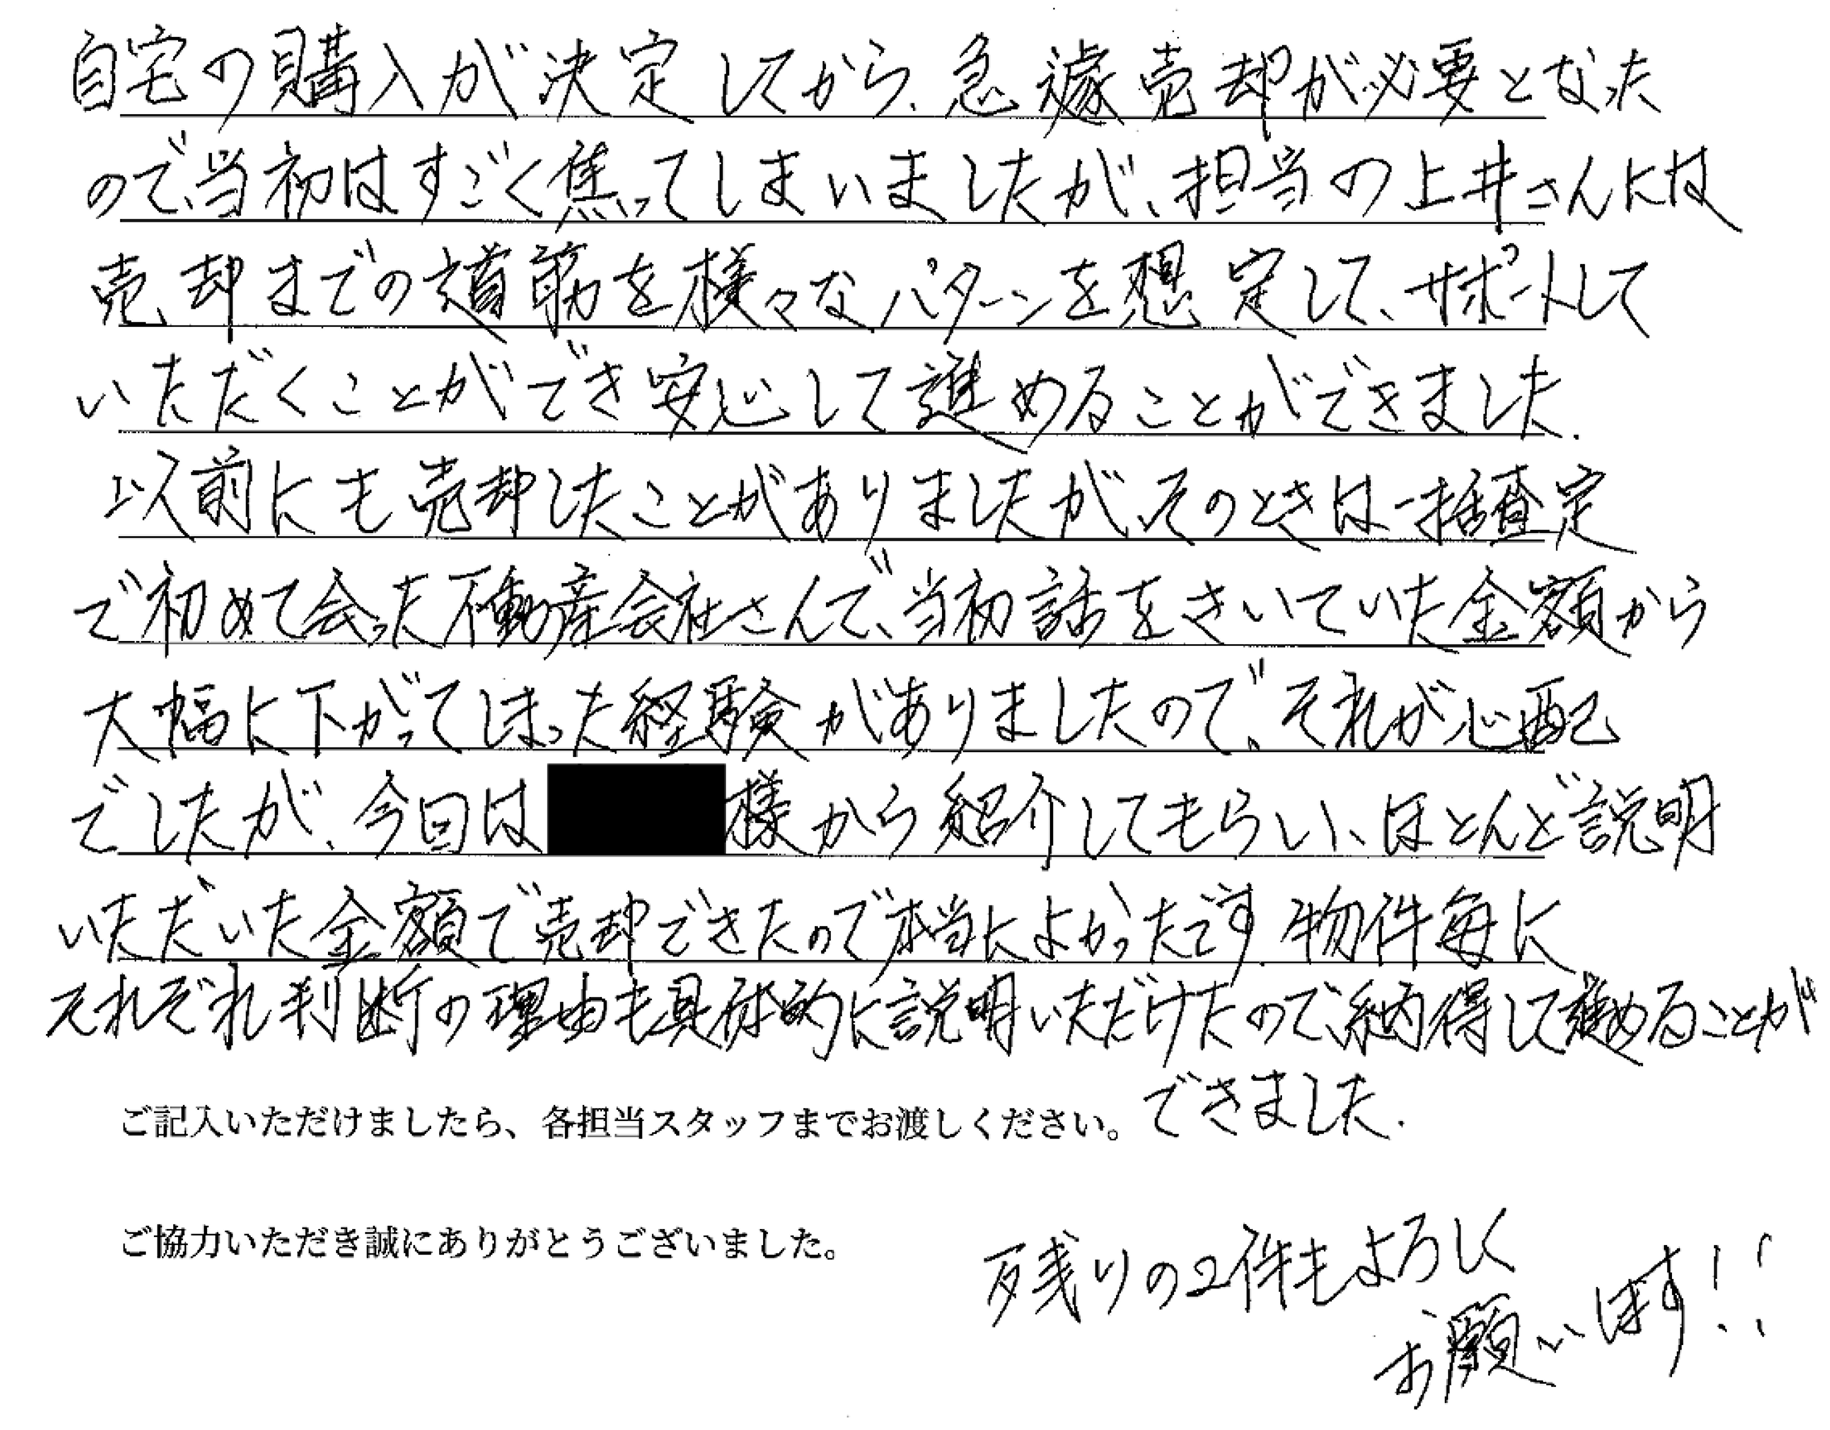 自宅の購入が決定してから、急遽売却が必要となった
ので、当初はすごく焦ってしまいましたが、担当の上井さんには
売却までの道筋を様々なパターンを想定して、サポートして
いただくことができ安心して進めることができました。
以前にも売却したことがありましたが、そのときは一括査定
で初めて会った不動産会社さんで、当初話をきいていた金額から
大幅に下がってしまった経験がありましたので、それが心配
でしたが、今回は様から紹介してもらい、ほとんど説明
いただいた金額で売却できたので本当によかったです。物件毎に
それぞれ判断の理由も具体的に説明いただけたので、納得して進めることが
できました。
ご記入いただけましたら、各担当スタッフまでお渡しください。
ご協力いただき誠にありがとうございました。
残りの2件もよろしく
お願いします!!